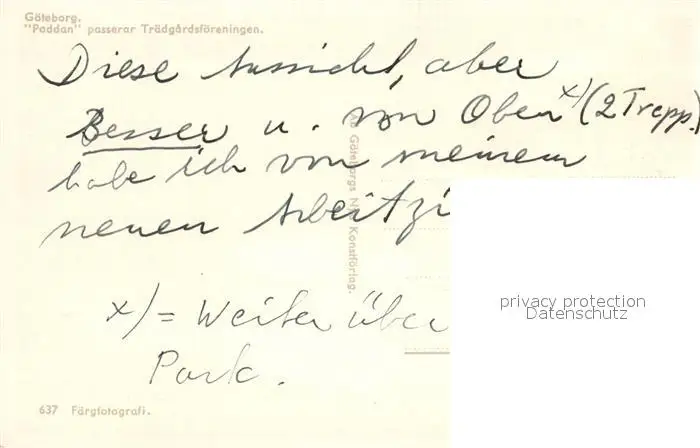 Göteborg.
"Paddan" passerar Trädgårdsföreningen.
Diese Aussicht, aber
Besser u. von Oben x) (2 Trepp.)
habe ich von meinem
neuen Arbeitzi
x) = Weiter über
Park.
Göteborgs Konstförlag.
privacy protection
Datenschutz
637 Färgfotografi.